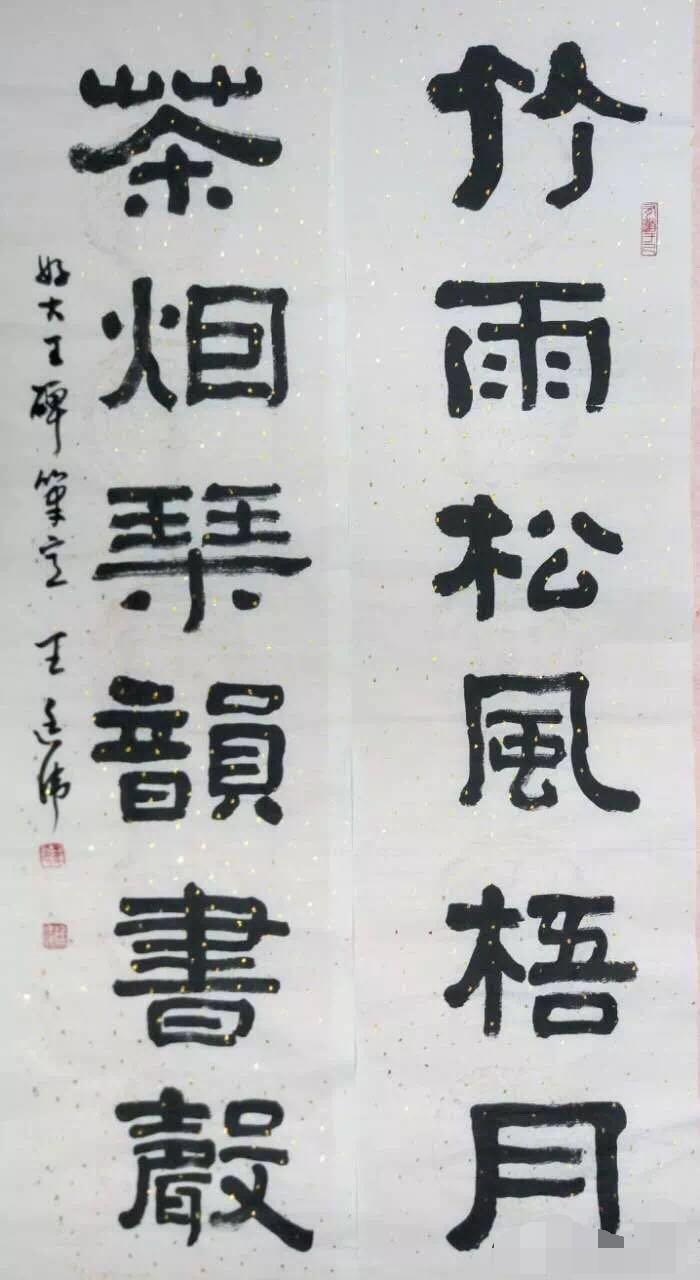 竹雨松風梧月
茶烟琴韻書聲
好大王碑筆意 王